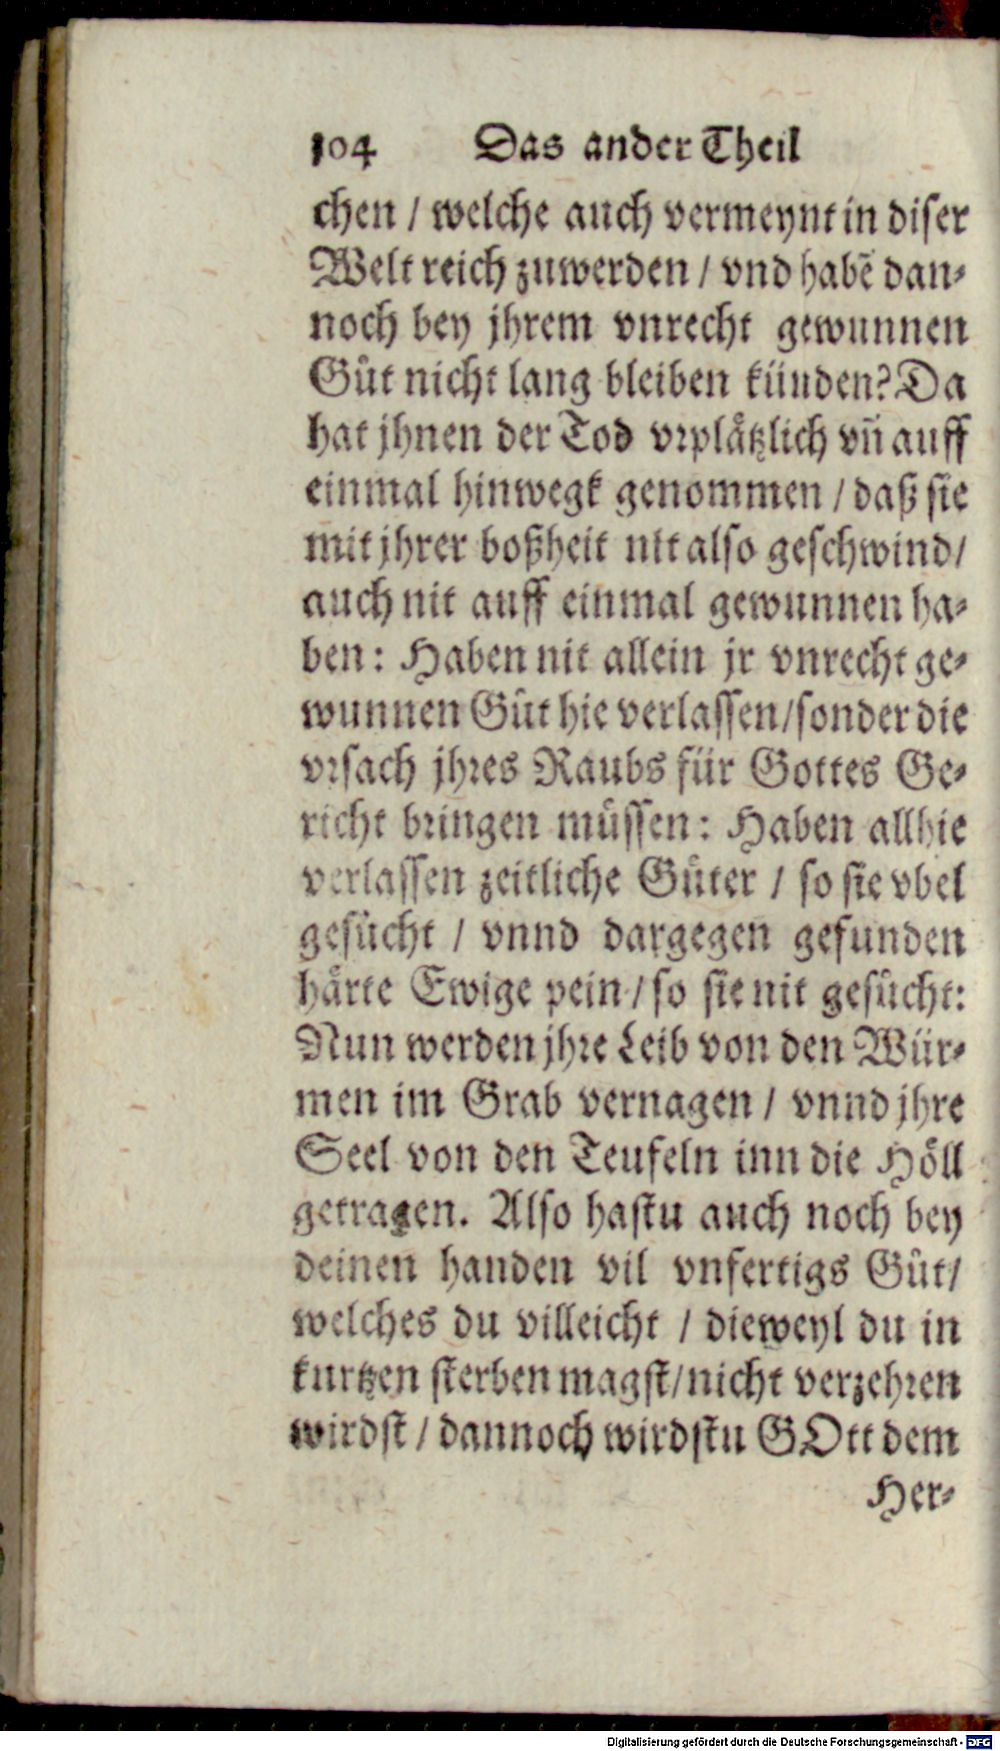 104 Das ander Theil
chen / welche auch vermeynt in diser
Welt reich zuwerden / vnd habē dan-
noch bey jhrem vnrecht gewunnen
Guͦt nicht lang bleiben künden? Da
hat jhnen der Tod vrplaͤtzlich vn̄ auff
einmal hinwegk genommen / daß sie
mit jhrer boßheit nit also geschwind /
auch nit auff einmal gewunnen ha-
ben: Haben nit allein jr vnrecht ge-
wunnen Guͦt hie verlassen / sonder die
vrsach jhres Raubs für Gottes Ge-
richt bringen muͤssen: Haben allhie
verlassen zeitliche Guͤter / so sie vbel
gesuͦcht / vnnd dargegen gefunden
haͤrte Ewige pein / so sie nit gesuͦcht:
Nun werden jhre Leib von den Wür-
men im Grab vernagen / vnnd jhre
Seel von den Teufeln inn die Hoͤll
getragen. Also hastu auch noch bey
deinen handen vil vnfertigs Guͦt /
welches du villeicht / dieweyl du in
kurtzen sterben magst / nicht verzehren
wirdst / dannoch wirdstu GOtt dem
Her-
Digitalisierung gefördert durch die Deutsche Forschungsgemeinschaft - DFG